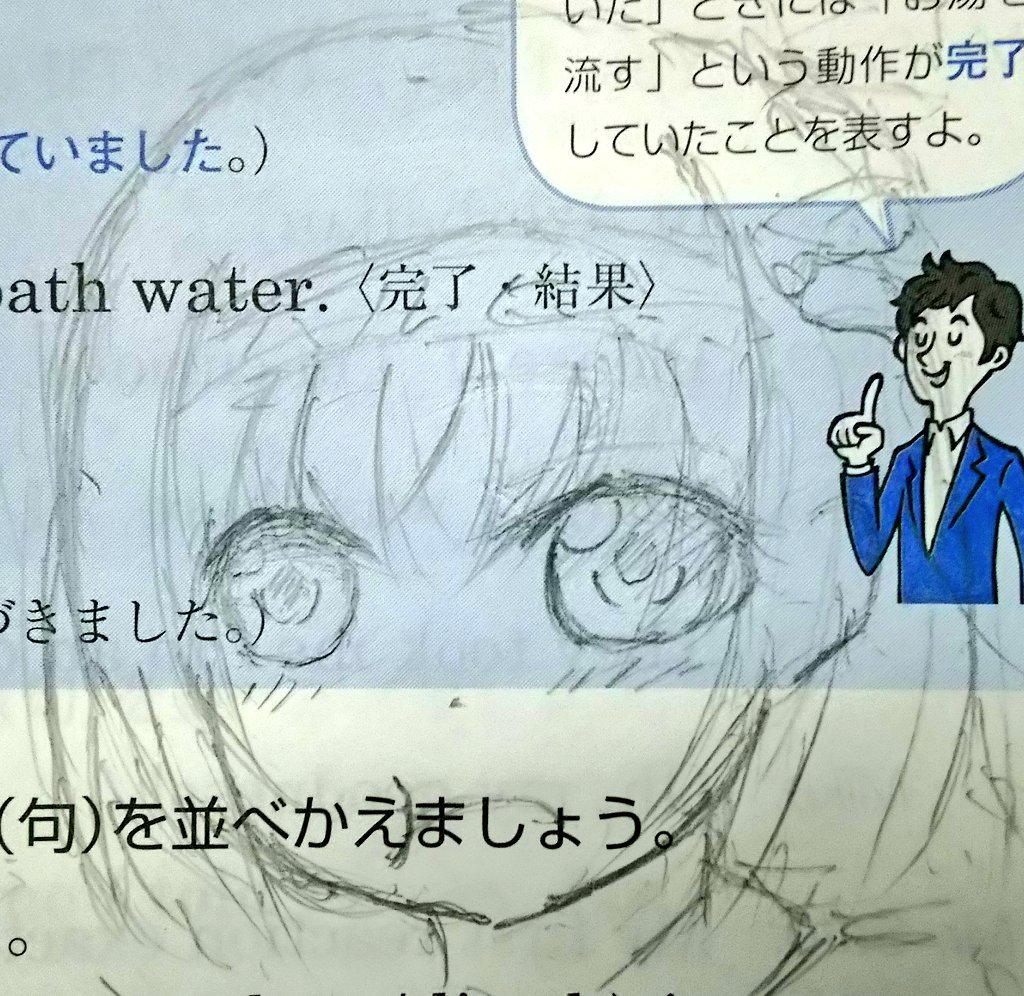 いた」ときには「お湯を
流す」という動作が完了
していたことを表すよ。
ていました。)
bath water.〈完了・結果〉
づきました。)
(句)を並べかえましょう。
。